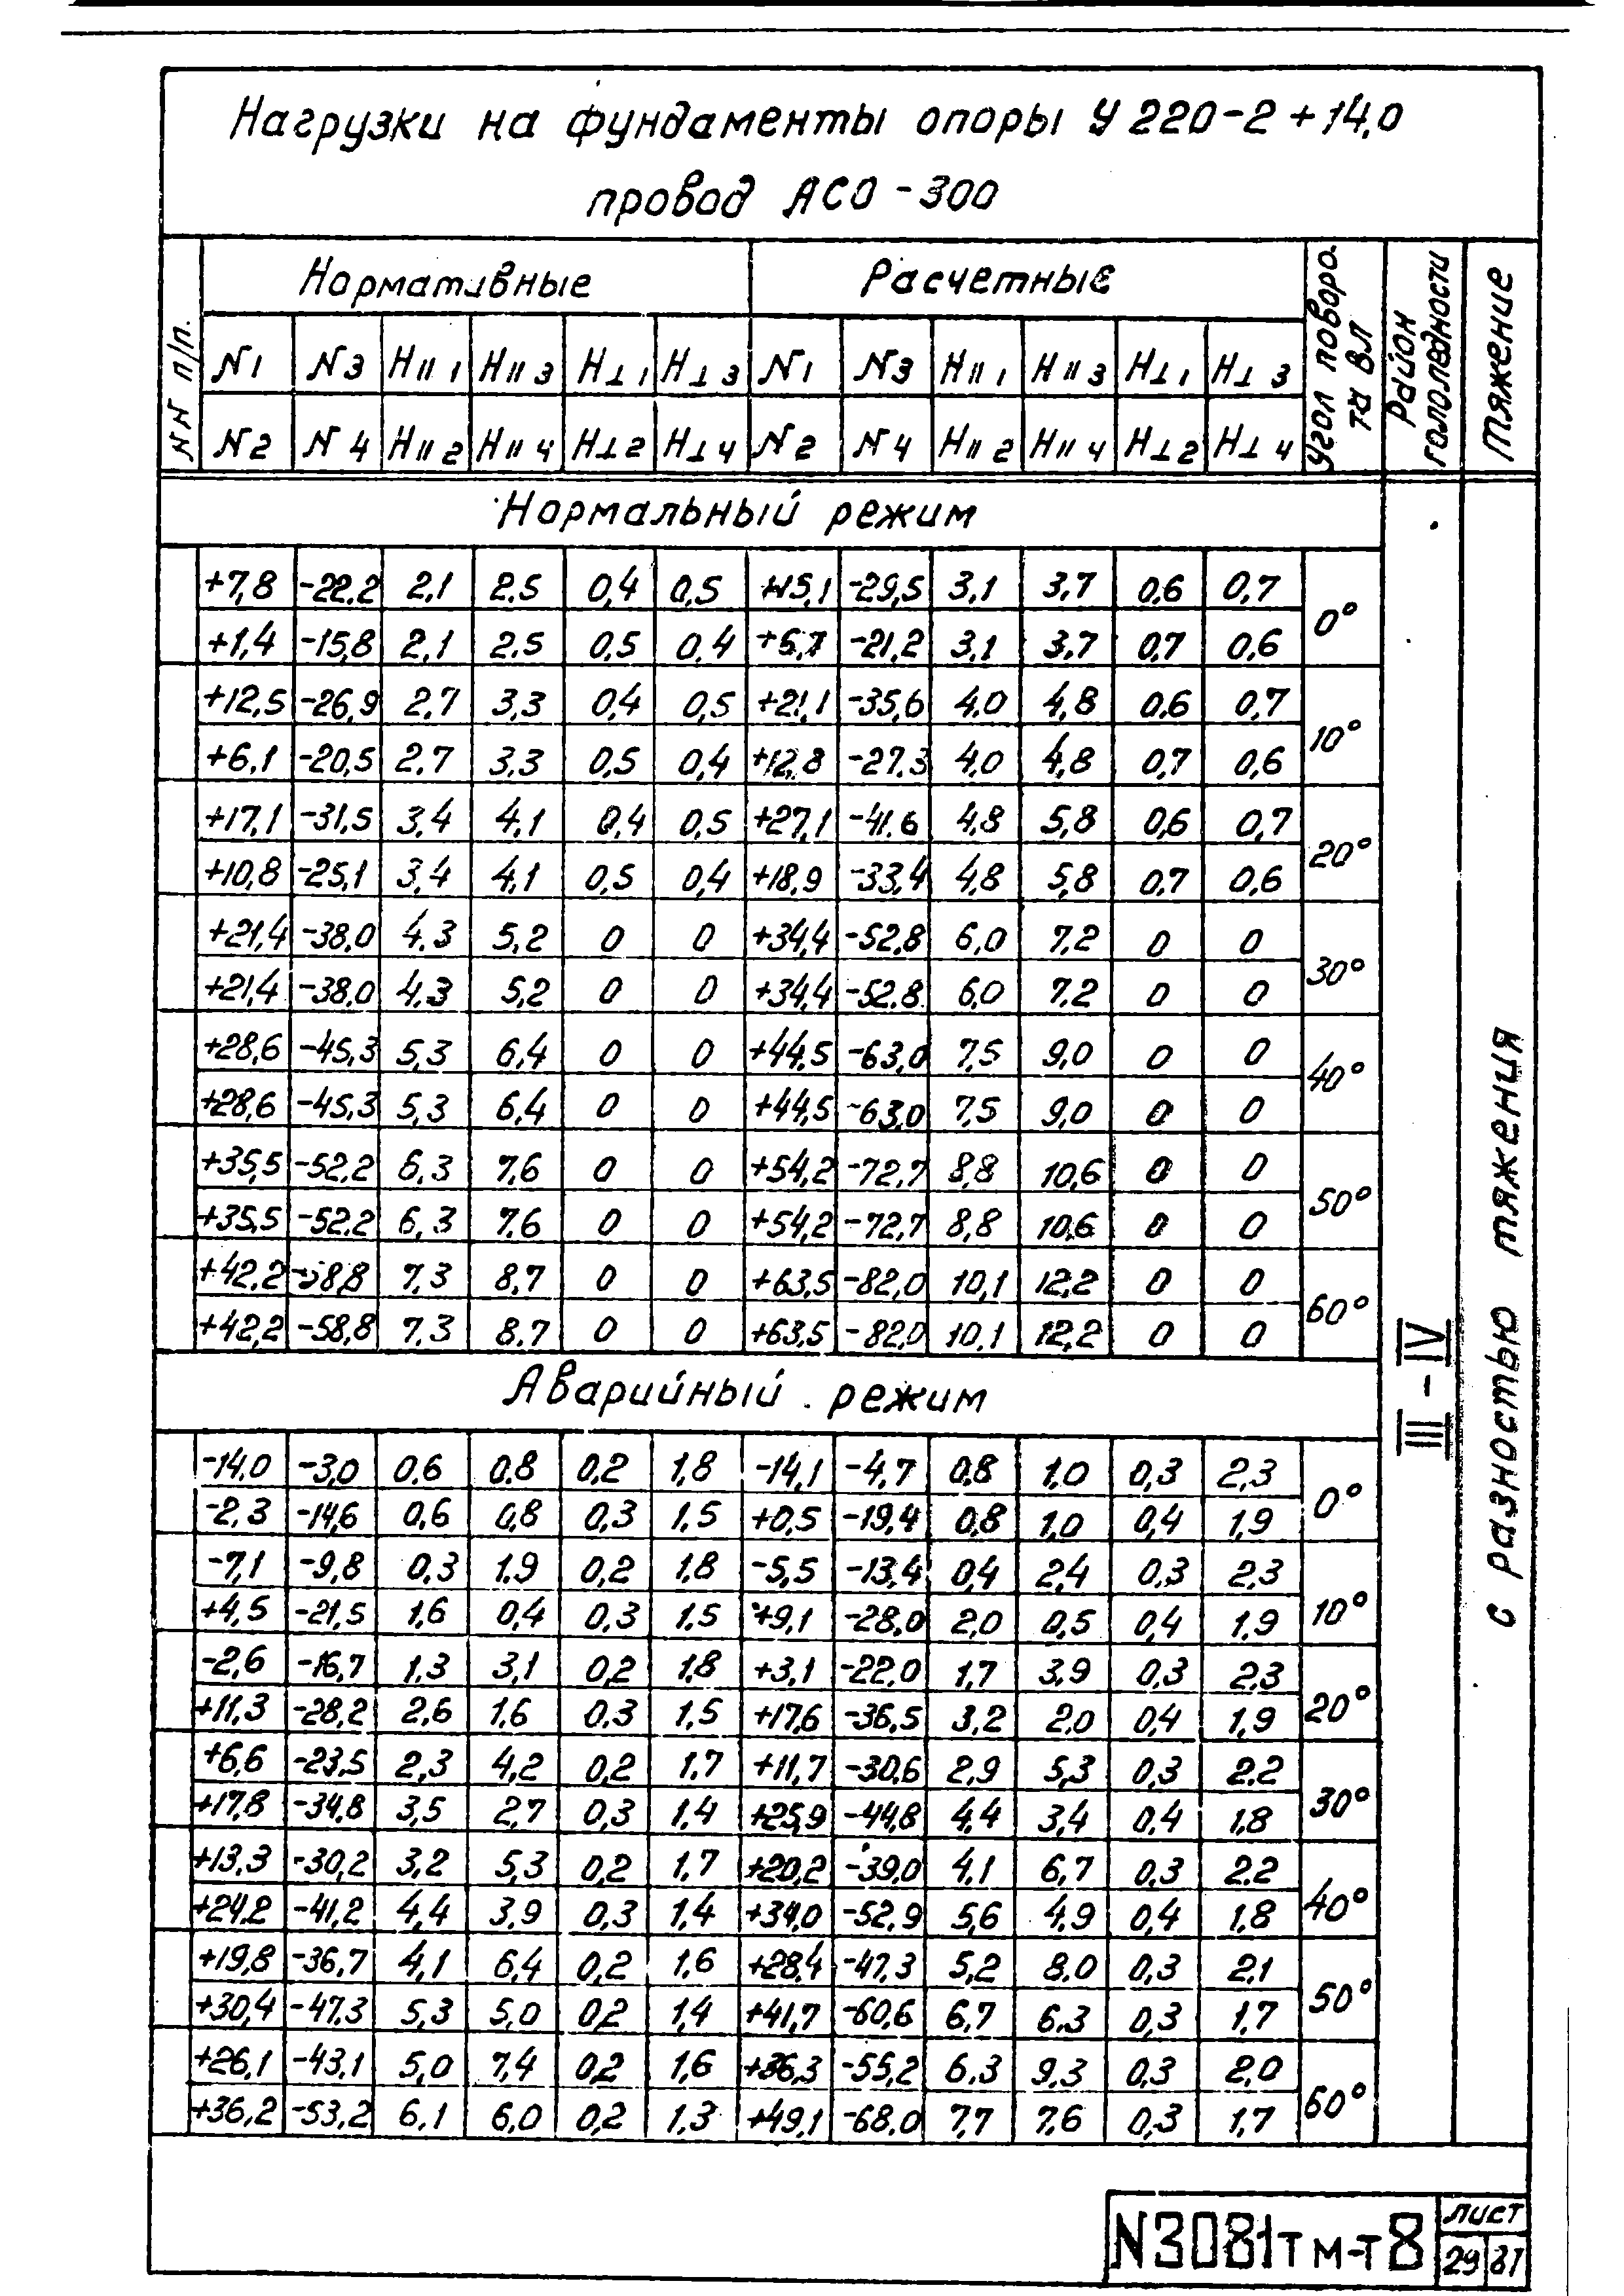 Нагрузки на фундаменты опоры У 220-2 + 14,0
провод АСО-300
NN п/п. Нормативные Расчетные Угол поворота ВЛ Район гололедности Тяжение
N1 N3 H∥1 H∥3 H⊥1 H⊥3 N1 N3 H∥1 H∥3 H⊥1 H⊥3
N2 N4 H∥2 H∥4 H⊥2 H⊥4 N2 N4 H∥2 H∥4 H⊥2 H⊥4
Нормальный режим
+7,8 -22,2 2,1 2,5 0,4 0,5 +15,1 -29,5 3,1 3,7 0,6 0,7 0°
+1,4 -15,8 2,1 2,5 0,5 0,4 -21,2 3,1 3,7 0,7 0,6
+12,5 -26,9 2,7 3,3 0,4 0,5 +21,1 -35,6 4,0 4,8 0,6 0,7 10°
+6,1 -20,5 2,7 3,3 0,5 0,4 +12,8 -27,3 4,0 4,8 0,7 0,6
+17,1 -31,5 3,4 4,1 0,4 0,5 +27,1 -41,6 4,8 5,8 0,6 0,7 20°
+10,8 -25,1 3,4 4,1 0,5 0,4 +18,9 -33,4 4,8 5,8 0,7 0,6
+21,4 -38,0 4,3 5,2 0 0 +34,4 -52,8 6,0 7,2 0 0 30°
+21,4 -38,0 4,3 5,2 0 0 +34,4 -52,8 6,0 7,2 0 0
+28,6 -45,3 5,3 6,4 0 0 +44,5 -63,0 7,5 9,0 0 0 40°
+28,6 -45,3 5,3 6,4 0 0 +44,5 -63,0 7,5 9,0 0 0
+35,5 -52,2 6,3 7,6 0 0 +54,2 -72,7 8,8 10,6 0 0 50°
+35,5 -52,2 6,3 7,6 0 0 +54,2 -72,7 8,8 10,6 0 0
+42,2 -58,8 7,3 8,7 0 0 +63,5 -82,0 10,1 12,2 0 0 60°
+42,2 -58,8 7,3 8,7 0 0 +63,5 -82,0 10,1 12,2 0 0
Аварийный режим
-14,0 -3,0 0,6 0,8 0,2 1,8 -14,1 -4,7 0,8 1,0 0,3 2,3 0°
-2,3 -14,6 0,6 0,8 0,3 1,5 +0,5 -19,4 0,8 1,0 0,4 1,9
-7,1 -9,8 0,3 1,9 0,2 1,8 -5,5 -13,4 0,4 2,4 0,3 2,3 10°
+4,5 -21,5 1,6 0,4 0,3 1,5 +9,1 -28,0 2,0 0,5 0,4 1,9
-2,6 -16,7 1,3 3,1 0,2 1,8 +3,1 -22,0 1,7 3,9 0,3 2,3 20°
+11,3 -28,2 2,6 1,6 0,3 1,5 +17,6 -36,5 3,2 2,0 0,4 1,9
+6,6 -23,5 2,3 4,2 0,2 1,7 +11,7 -30,6 2,9 5,3 0,3 2,2 30°
+17,8 -34,8 3,5 2,7 0,3 1,4 +25,9 -44,8 4,4 3,4 0,4 1,8
+13,3 -30,2 3,2 5,3 0,2 1,7 +20,2 -39,0 4,1 6,7 0,3 2,2 40°
+24,2 -41,2 4,4 3,9 0,3 1,4 +34,0 -52,9 5,6 4,9 0,4 1,8
+19,8 -36,7 4,1 6,4 0,2 1,6 +28,4 -47,3 5,2 8,0 0,3 2,1 50°
+30,4 -47,3 5,3 5,0 0,2 1,4 +41,7 -60,6 6,7 6,3 0,3 1,7
+26,1 -43,1 5,0 7,4 0,2 1,6 +36,3 -55,2 6,3 9,3 0,3 2,0 60°
+36,2 -53,2 6,1 6,0 0,2 1,3 +49,1 -68,0 7,7 7,6 0,3 1,7
III - IV
с разностью тяжения
N3081тм-т8
лист
29